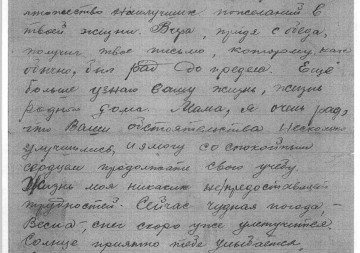 множество наилучших пожеланий в
твоей жизни. Вчера, придя с обеда,
получил твоё письмо, которому, как
обычно, был рад до предела. Ещё
больше узнаю вашу жизнь, жизнь
родного дома. Мама, я очень рад,
что Ваши обстоятельства несколько
улучшились, и я могу со спокойным
сердцем продолжать свою учёбу.
Жизнь моя никаких не представляет
трудностей. Сейчас чудная погода, –
Весна –, снег скоро уже улетучится.
Солнце приятно тебе улыбается,